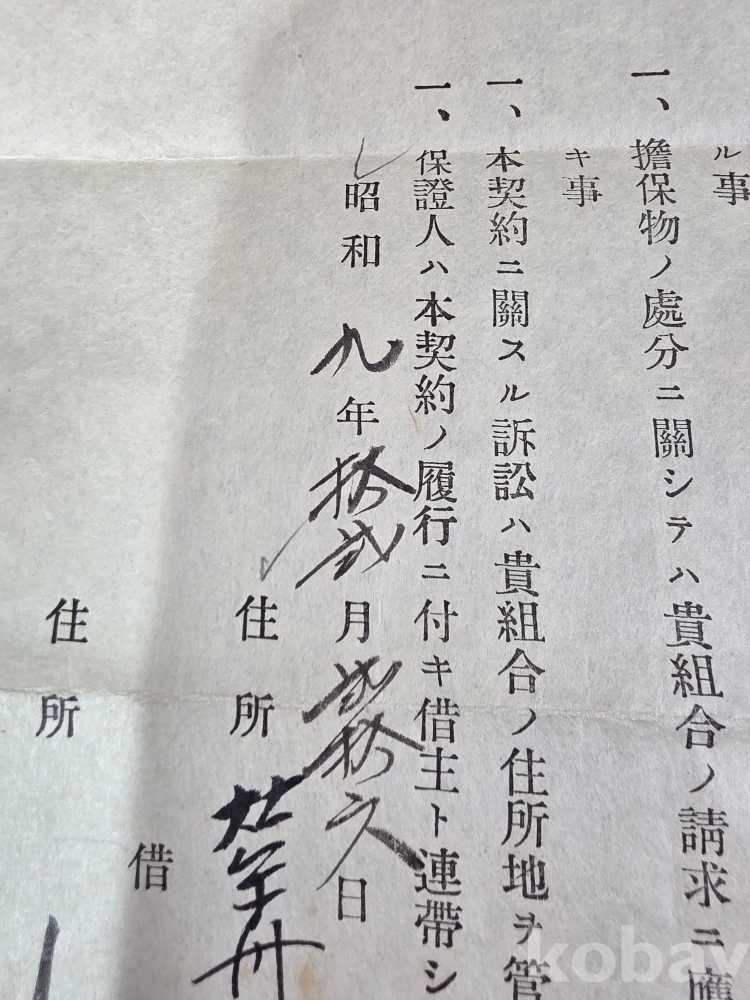 ル事
一、擔保物ノ處分ニ關シテハ貴組合ノ請求ニ應
キ事
一、本契約ニ關スル訴訟ハ貴組合ノ住所地ヲ管
一、保證人ハ本契約ノ履行ニ付キ借主ト連帶シ
昭和九年拾弐月弐拾六日
住所
借
住所
kobay